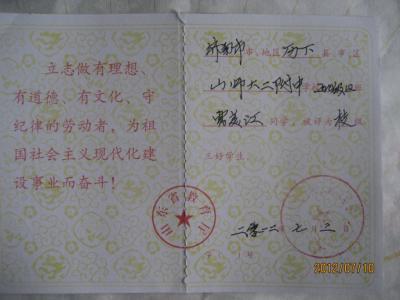 立志做有理想、
有道德、有文化、守
纪律的劳动者，为祖
国社会主义现代化建
设事业而奋斗！
山东省教育厅
济南市市、地区历下县市区
山师大二附中学校
同学，被评为校级
三好学生。
二零一二年七月三日
2012/07/10